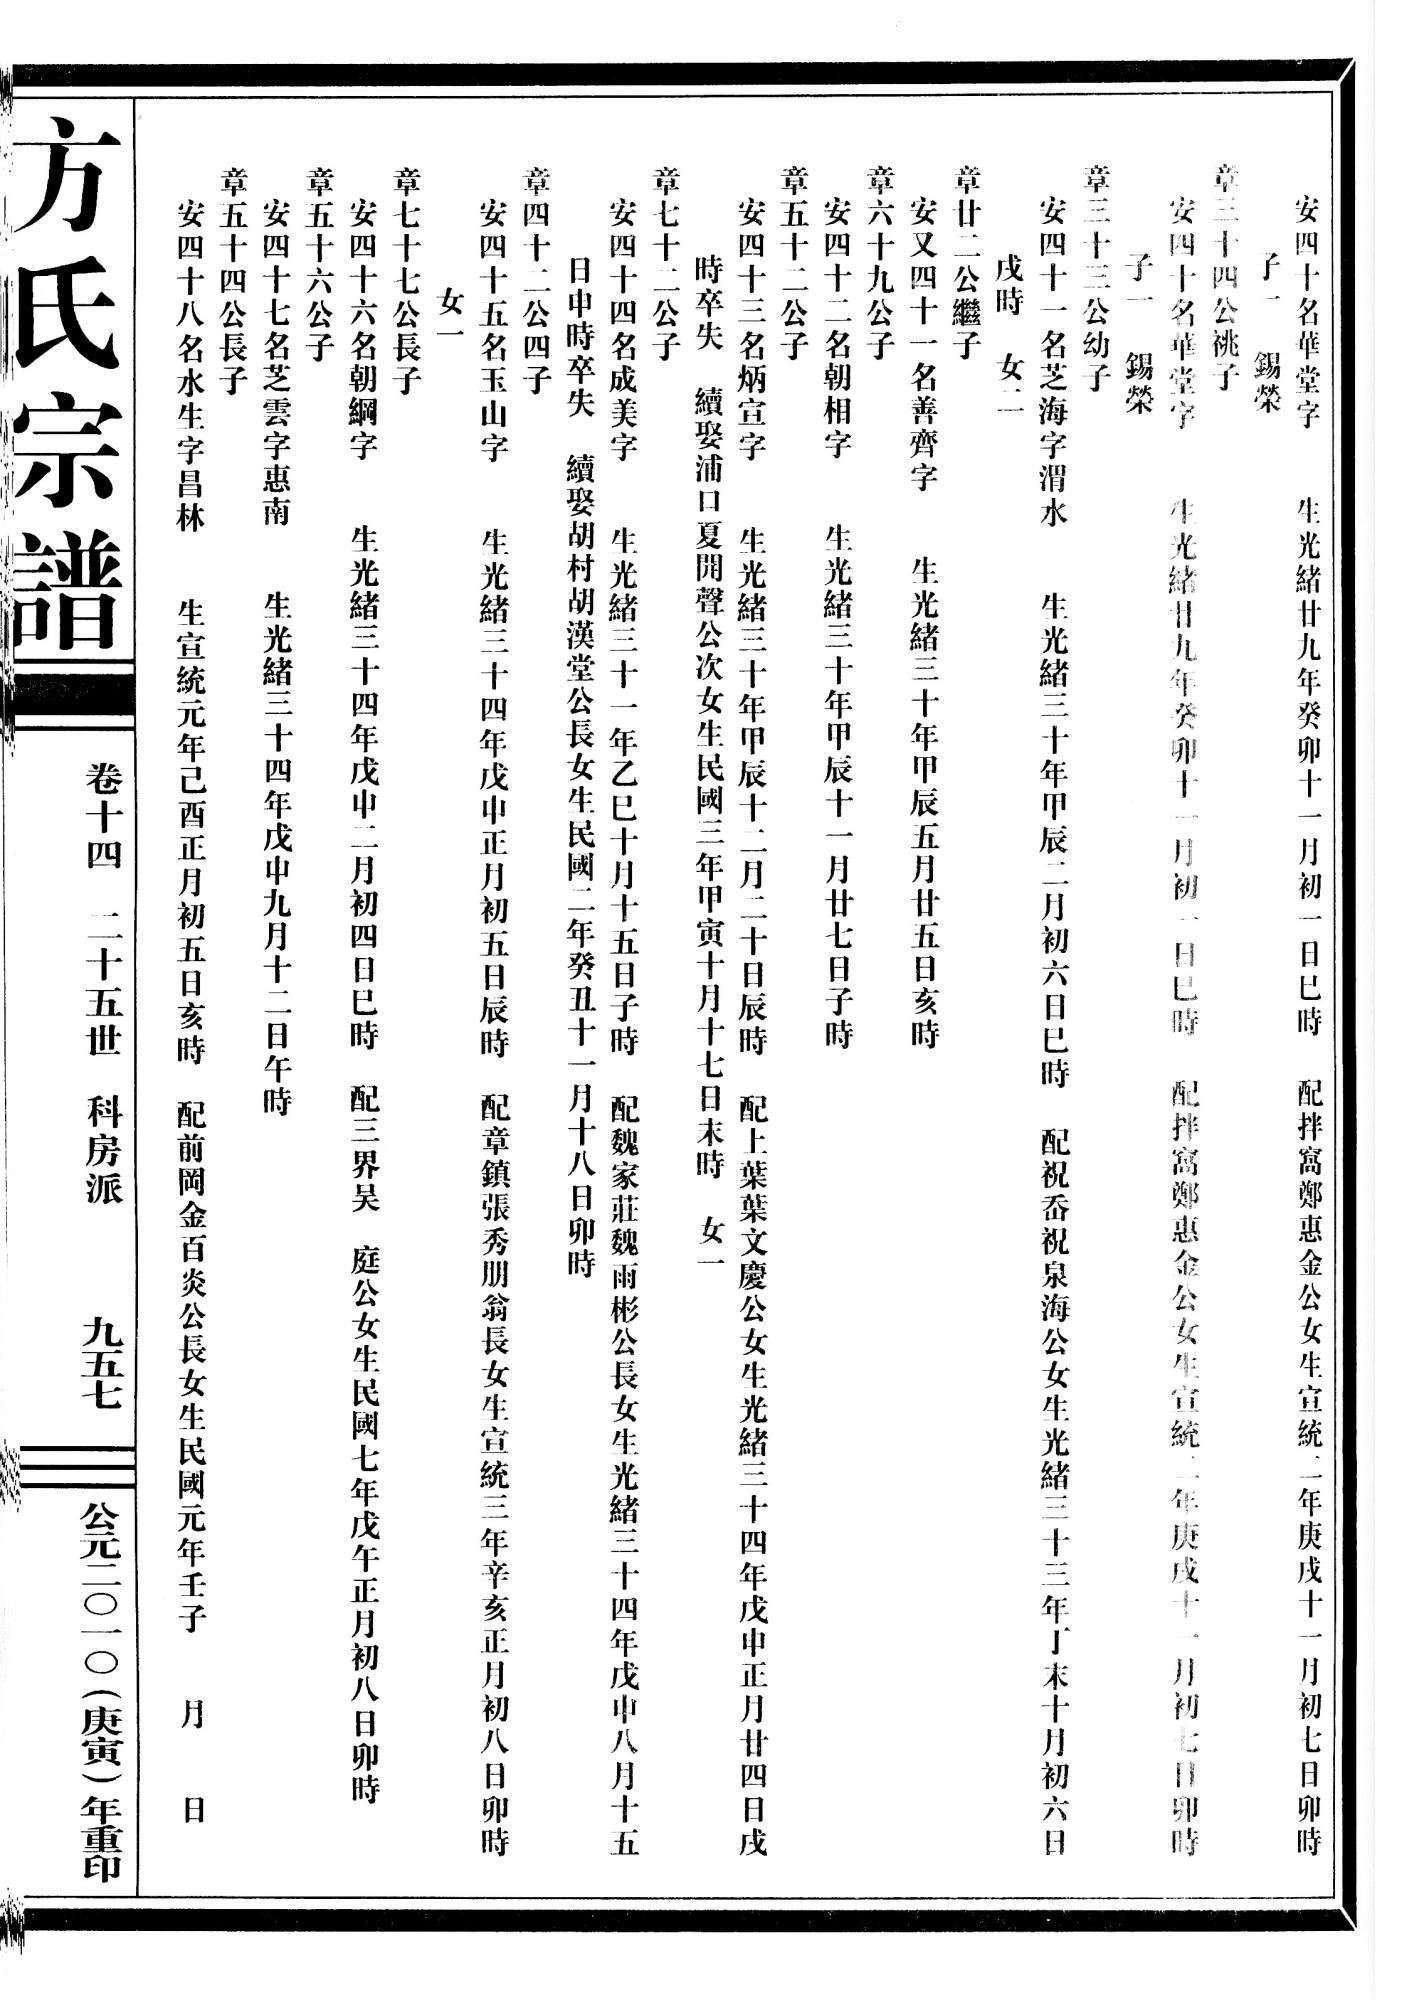 安四十名華堂字　生光緒廿九年癸卯十一月初一日巳時　配拌窩鄭惠金公女生宣統二年庚戌十一月初七日卯時
子一　錫榮
章三十四公祧子
安四十名華堂字　生光緒廿九年癸卯十一月初一日巳時　配拌窩鄭惠金公女生宣統二年庚戌十一月初七日卯時
子一　錫榮
章三十三公幼子
安四十一名芝海字渭水　生光緒三十年甲辰二月初六日巳時　配祝岙祝泉海公女生光緒三十三年丁未十月初六日
戌時　女二
章廿二公繼子
安又四十一名善齊字　生光緒三十年甲辰五月廿五日亥時
章六十九公子
安四十二名朝相字　生光緒三十年甲辰十一月廿七日子時
章五十二公子
安四十三名炳宣字　生光緒三十年甲辰十二月二十日辰時　配上葉葉文慶公女生光緒三十四年戊申正月廿四日戌
時卒失　續娶浦口夏開聲公次女生民國三年甲寅十月十七日未時　女一
章七十二公子
安四十四名成美字　生光緒三十一年乙巳十月十五日子時　配魏家莊魏雨彬公長女生光緒三十四年戊申八月十五
日申時卒失　續娶胡村胡漢堂公長女生民國二年癸丑十一月十八日卯時
章四十二公四子
安四十五名玉山字　生光緒三十四年戊申正月初五日辰時　配章鎮張秀朋翁長女生宣統三年辛亥正月初八日卯時
女一
章七十七公長子
安四十六名朝綱字　生光緒三十四年戊申二月初四日巳時　配三界吴　庭公女生民國七年戊午正月初八日卯時
章五十六公子
安四十七名芝雲字惠南　生光緒三十四年戊申九月十二日午時
章五十四公長子
安四十八名水生字昌林　生宣統元年己酉正月初五日亥時　配前岡金百炎公長女生民國元年壬子　月　日
方氏宗譜
卷十四　二十五世　科房派　九五七
公元二〇一〇（庚寅）年重印